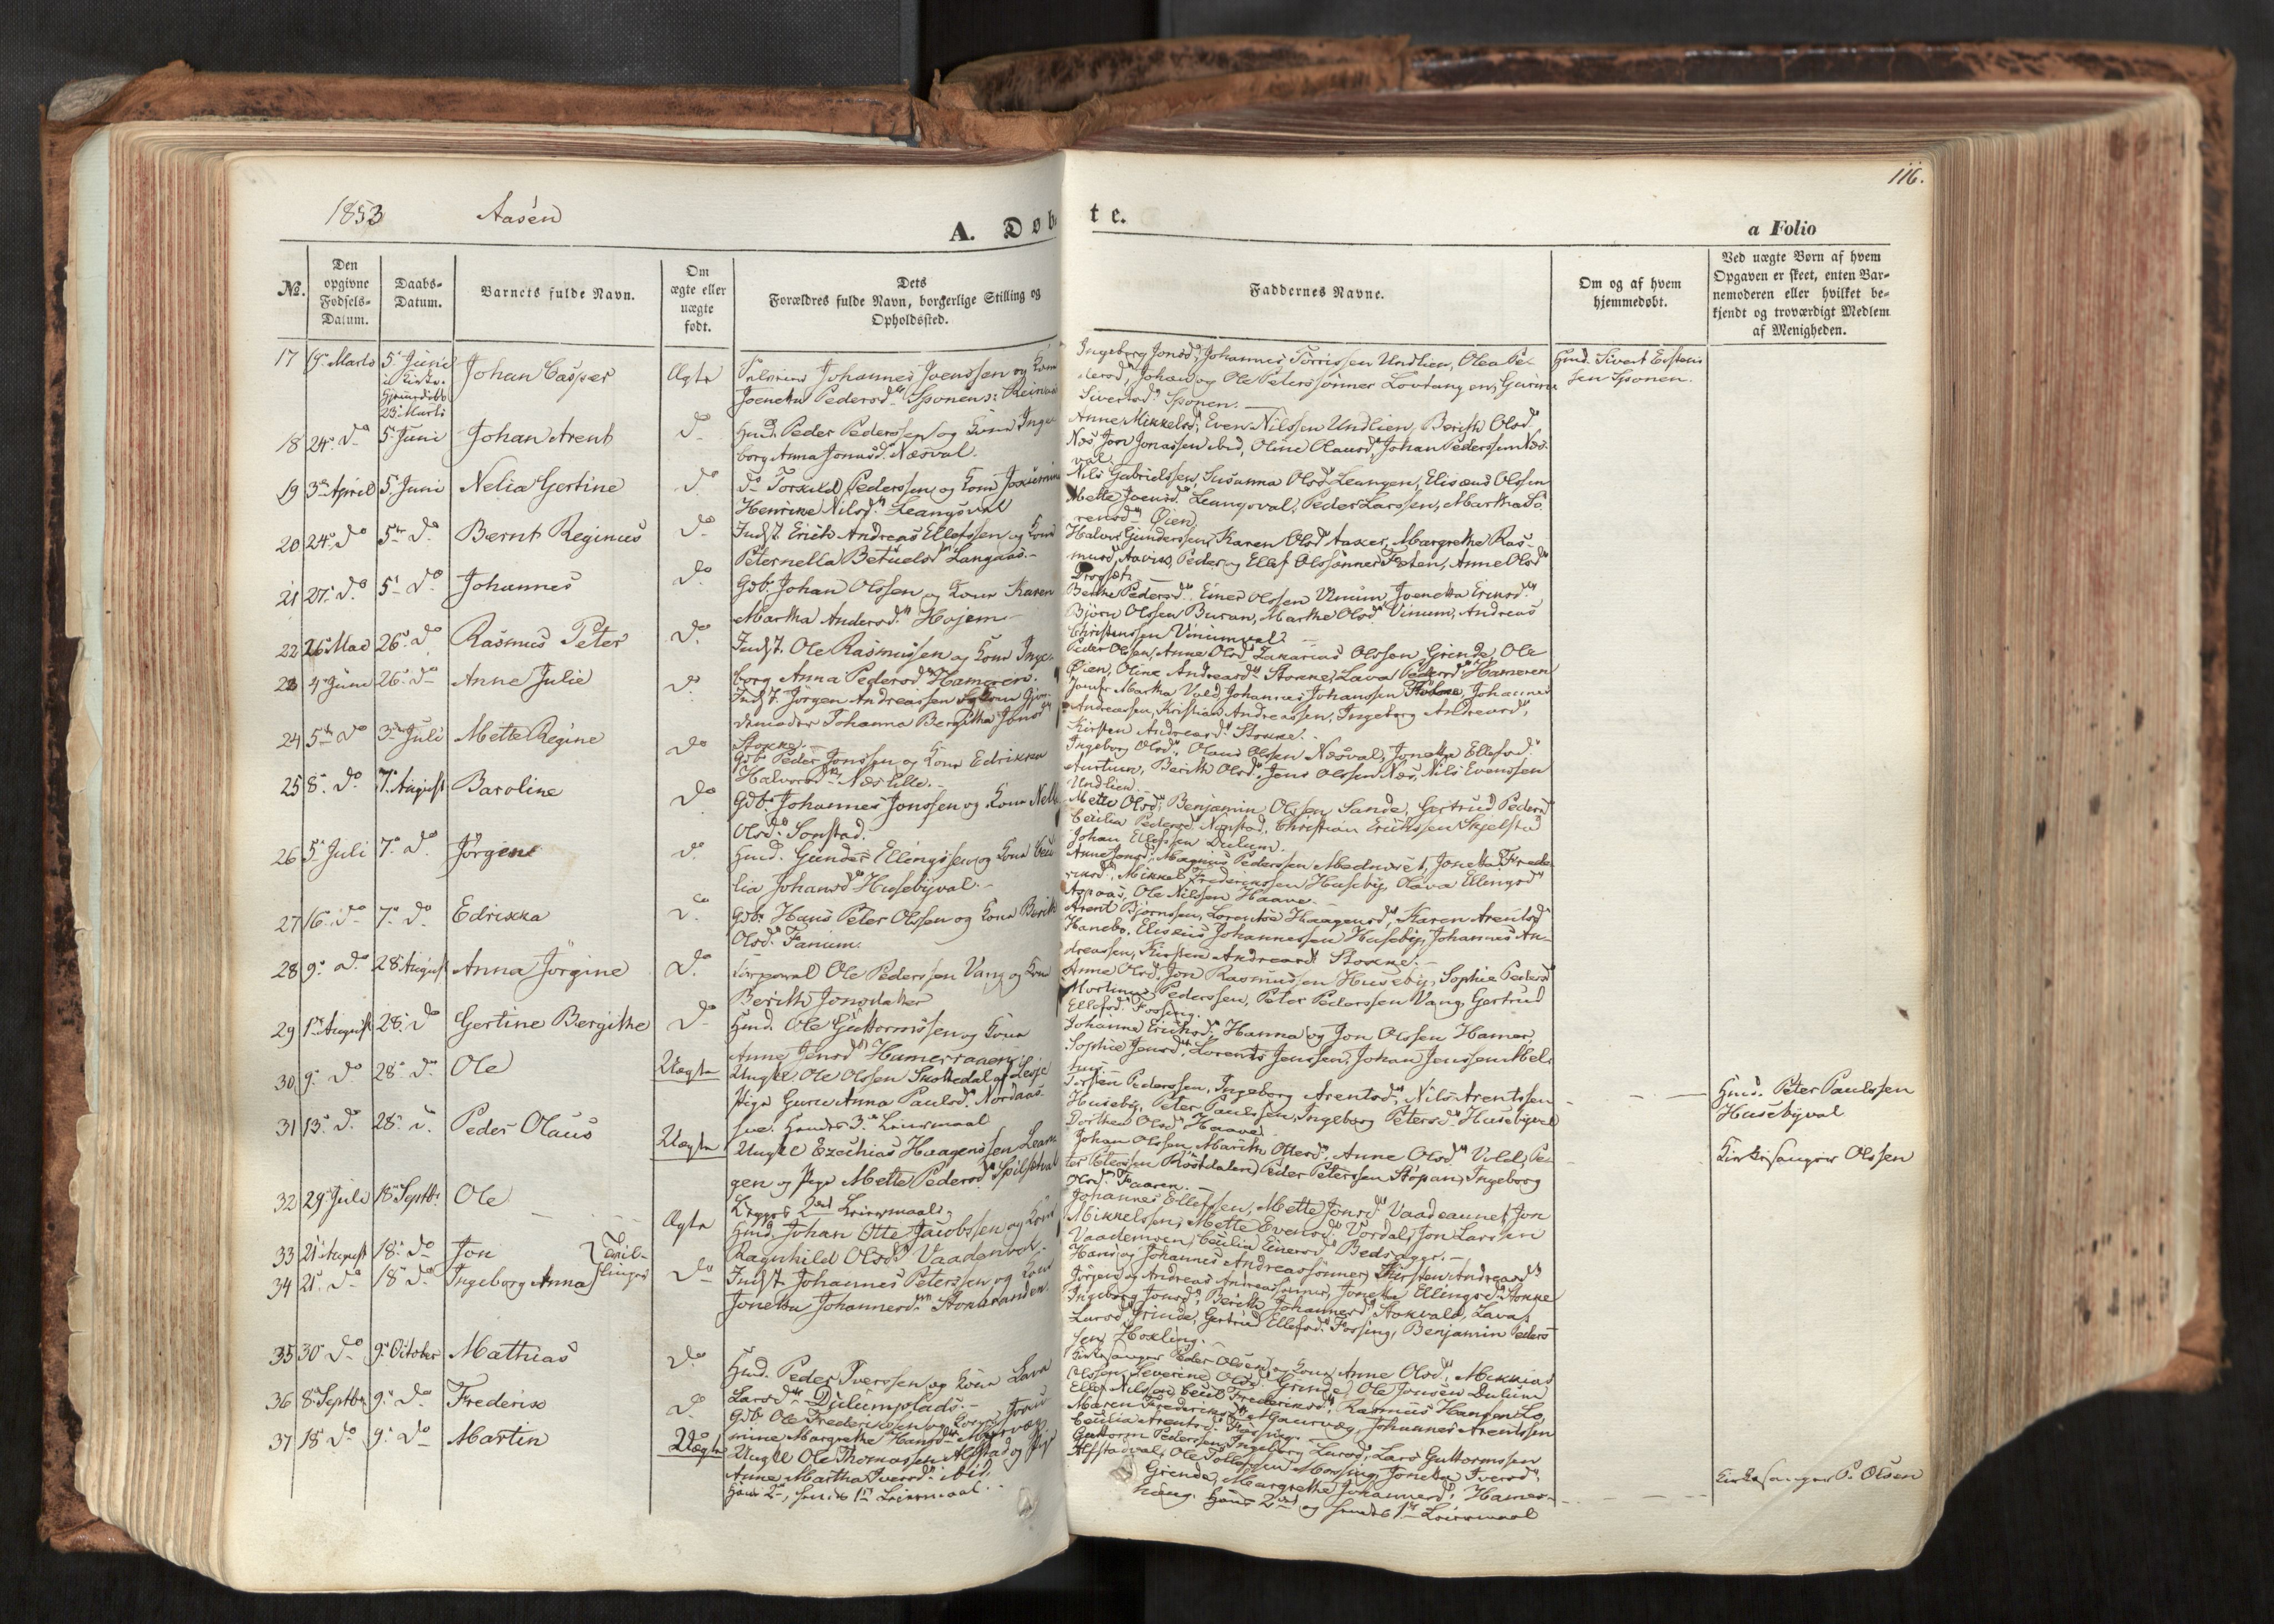 116.
1853 Aasén
A. Døbte.
a Folio
No.
Den opgivne Fødsels-Datum.
Daabs-Datum.
Barnets fulde Navn.
Om ægte eller uægte født.
Dets Forældres fulde Navn, borgerlige Stilling og Opholdssted.
Faddernes Navne.
Om og af hvem hjemmedøbt.
Ved uægte Børn af hvem Opgaven er skeet, enten Barnemoderen eller hvilket bekjendt og troværdigt Medlem af Menigheden.
17 Marts 5 Juni Johan Casper Ægte
Johannes Joenssen og Kone
Joenetta Pedersd. Sponens
Ingeborg Jonsd, Johannes Undlien, Olea Pe-
dersd, Johan og Ole Peterssønner Lovtangen,
Sivertsd. Sponen.
Hmd. Sivert
sen Sponen.
18 24 do 5 Juni Johan Arent do
Hmd. Peder Pederssen og Kone Inge-
borg Anna Jonasd. Næsval.
Anne Mikkelsd, Even Nilssen Undlien, Berith Olsd.
Næs, Jon Jonassen ibid, Oline Olausd, Johan Pederssen Næs-
val.
19 3 April 5 Juni Nelia Gertine do
do Torkild Pederssen og Kone
Henrike Nilsd. Leangsval
Nils Gabrielssen, Susanna Olsd Leangen, Elisæus Olssen
Mette Joensd. Leangsval, Peder Larssen, Martha Sø-
rensd Øien.
20 24 do 5 do Bernt Reginus do
Indst. Erich Andreas Ellefssen og Kone
Peternella Betuelsd Langaas.
Halvor Gunderssen, Karen Olsd Aaker, Margrethe Ras-
musd, Peder og Ellef Olssønner Fæten, Anne Olsd
21 27 do 5 do Johannes do
Gdb. Johan Olssen og Kone Karen
Martha Andersd. Hojem
Benthe Pedersd. Einer Olssen Vinum, Joenetta Eriksd.
Bjørn Olssen Buran, Marthe Olsd Vinum, Andreas
Christenssen Vinumval.
22 26 Mai 26 do Rasmus Peter do
Indst. Ole Rasmussen og Kone Inge-
borg Anna Pedersd Hameren.
Peder Olsen, Anne Olsd Zakarias Olssen Grinde, Ole
Øien, Oline Andreasd Stokke, Lava Pedersd Hameren
23 4 Juni 26 do Anne Julie do
Indst. Jørgen Andreassen
Johanna Bergitha Jonsd
Stokke.
Martha Vold, Johannes Johanssen, Johannes
Andreassen, Kristian Andreassen, Ingeborg Andreasd,
Kirsten Andreasd. Stokke.
24 5 do 3 Juli Mette Regine do
Gdb. Peder Jonssen og Kone Edrikka
Halvorsd. Næs lille.
Ingeborg Olsd, Olaus Olssen Næsval, Jonetta Ellefsd.
Aurtun, Berith Olsd, Jens Olssen Næs, Nils Evenssen
Undlien
25 8 do 7 August Baroline do
Gdb. Johannes Jonssen og Kone
Olsd. Sonstad.
Mette Olsd, Benjamin Olssen Sande, Gertrud Pedersd
Cecilia Pedersd. Nonstad, Christian Erikssen Skjelstad
Johan Ellefssen Dulum.
26 5 Juli 7 do Jørgine do
Hmd. Gunder Ellingssen og Kone Ceci-
lia Johansd Husebyval.
Anne Jonsd, Magnus Pederssen, Jonetta Frede-
riksd, Mikkel Frederikssen Huseby, Olava Ellingsd
Ole Nilssen Haave.
27 16 do 7 do Edrikka do
Gdb. Hans Peter Olssen og Kone Berith
Olsd. Fanum.
Arent Bjørnssen, Lorentse Haagensd, Karen Arentsd
Hanebo, Eliseus Johannessen Huseby, Johannes An-
dreassen, Kirsten Andreasd Stokke.
28 9 do 28 August Anna Jørgine do
Korporal Ole Pederssen Vang og Kone
Berith Jonsdatter
Anne Olsd, Jon Rasmussen Huseby, Sophie Pedersd
Mortinus Pederssen, Peter Pederssen Vang, Gertrud
Ellefsd. Fossing.
29 1 August 28 do Gertine Bergithe do
Hmd. Ole Guttormssen og Kone
Anne Jensd
Johanna Eriksd, Hanna og Jon Olssen Hamar,
Sophie Jensd, Lorents Jenssen, Johan Jenssen
30 9 do 28 do Ole Uægte
Ungkl. Ole Olssen Skottedal af Lesje
Pige Guru Anna Paulsd. Nordaas.
Hendes 3 Leiermaal
Torsten Pederssen, Ingeborg Arentsd, Nils Arentssen
Huseby, Peter Paulssen, Ingeborg Petersd Husebyval
Dorthea Olsd Haave.
Hmd. Peter Paulssen
Husebyval
31 13 do 28 do Peder Olaus Uægte
Ungkl Ezechias Haagenssen Lean-
gen og Pige Mette Pedersd.
Begges Leiermaal.
Johan Olssen, Marith Ottersd, Anne Olsd Vold, Pe-
ter Peterssen, Peder Peterssen Stopan, Ingeborg
Olsd. Faaren.
Kirkesanger Olssen
32 29 Juli 18 Septbr. Ole Ægte
Hmd. Johan Otte Jacobssen og Kone
Ragnhild Olsd Vaadenval.
Johannes Ellefssen, Mette Jonsd Vaadeaunet, Jon
Mikkelssen, Mette Evensd. Vordal, Jon Larssen
Vaadenvoen, Cecilia Einersd Bedsager.
33 21 August 18 do Jon
34 21 do 18 do Ingeborg Anna
Tvillinger do
Indst. Johannes Peterssen og Kone
Jonetta Johannesd Stokstranden.
Hans og Johannes Andreassønner, Kirsten Andreasd
Jørgen og Andreas Andreassønner, Jonetta Ellingsd Stokke
Ingeborg Jonsd, Berith Johannesd Stokvald, Lava
Larsd Grinde, Gertrud Ellefsd. Fossing, Benjamin Peders-
sen Hokling.
35 30 do 9 October Mathias do
Hmd. Peder Iverssen og Kone Lava
Larsd. Dulumplads.
Kirkesanger Peder Olssen og Kone Anne Olsd, Mikkias
Olssen, Severine Olsd. Grinde, Ole Jonssen Dulum
36 8 Septbr 9 do Frederik do
Gdb. Ole Frederikssen og Kone
Margrethe Hansd
Ellef Nilssen, Frederiksd, Rasmus Hanssen Lo,
Maren Frederiksd, Johannes Arentssen
Cecilia Arentsd. Fossing.
37 18 do 9 do Martin Uægte
Ungkl Ole Thomassen Alfstad og Pige
Anne Martha Iversd. ibid.
Hans 2, hendes 1 Leiermaal.
Guttorm Pederssen, Ingeborg Larsd, Lars Guttormssen
Alfstadval, Ole Tollefssen Mossing, Jonetta Iversd,
Grinde, Margrethe Johannesd, Hamer-
haug. Hans 2 og hendes 1 Leiermaal
Kirkesanger P. Olsen